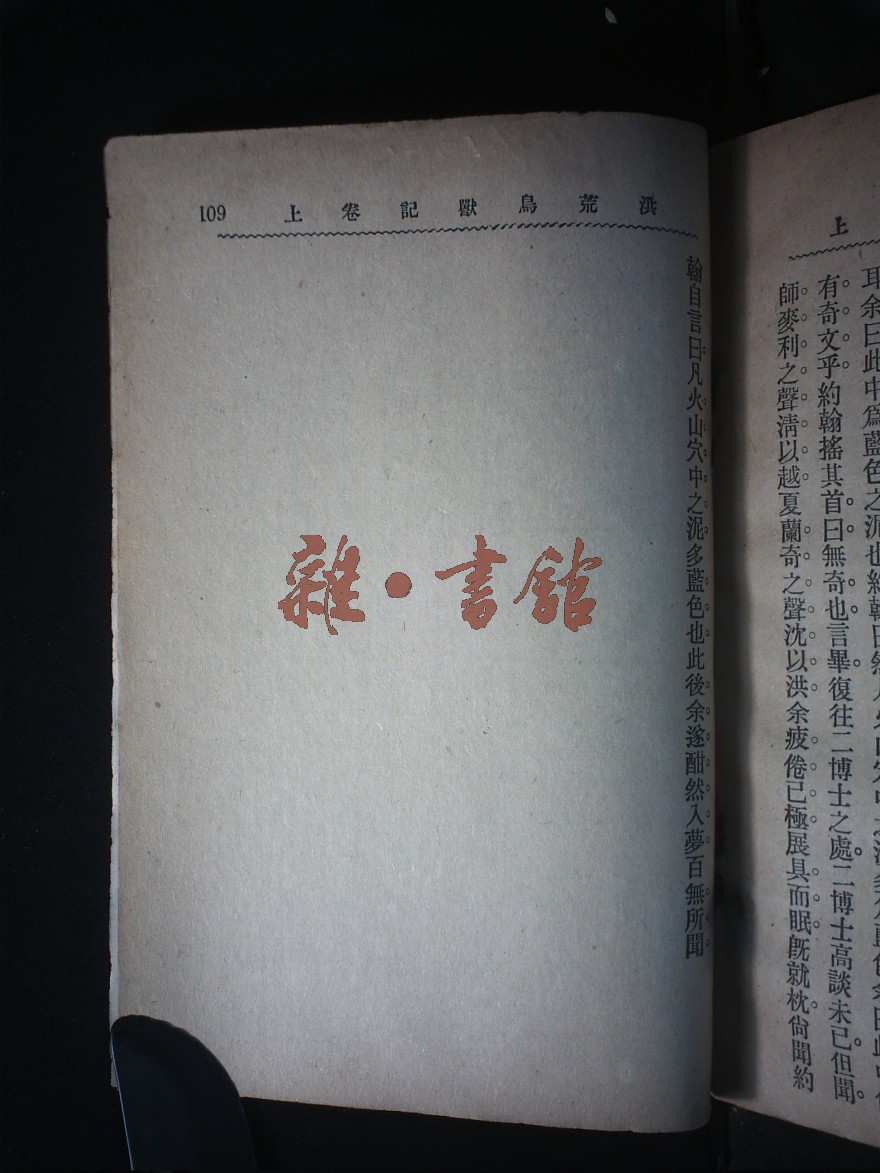 上
耶余曰此中爲藍色之泥也約翰曰然凡火山穴中之泥多
有奇文乎約翰搖其首曰無奇也言畢復往二博士之處二博士高談未已但聞
師麥利之聲淸以越夏蘭奇之聲沈以洪余疲倦已極展具而眠旣就枕尙聞約
洪荒鳥獸記卷上 109
翰自言曰凡火山穴中之泥多藍色也此後余遂酣然入夢百無所聞
雜·書館